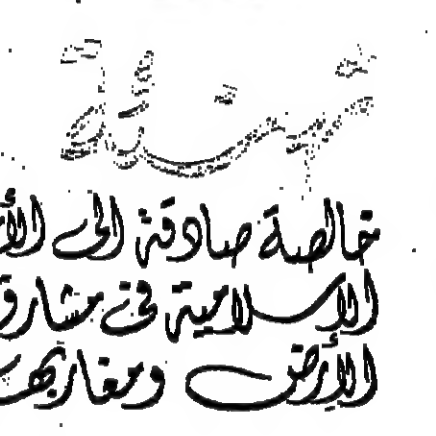 تهنئة
خالصة صادقة الى الأ
الإسلامية في مشارق
الأرض ومغاربها